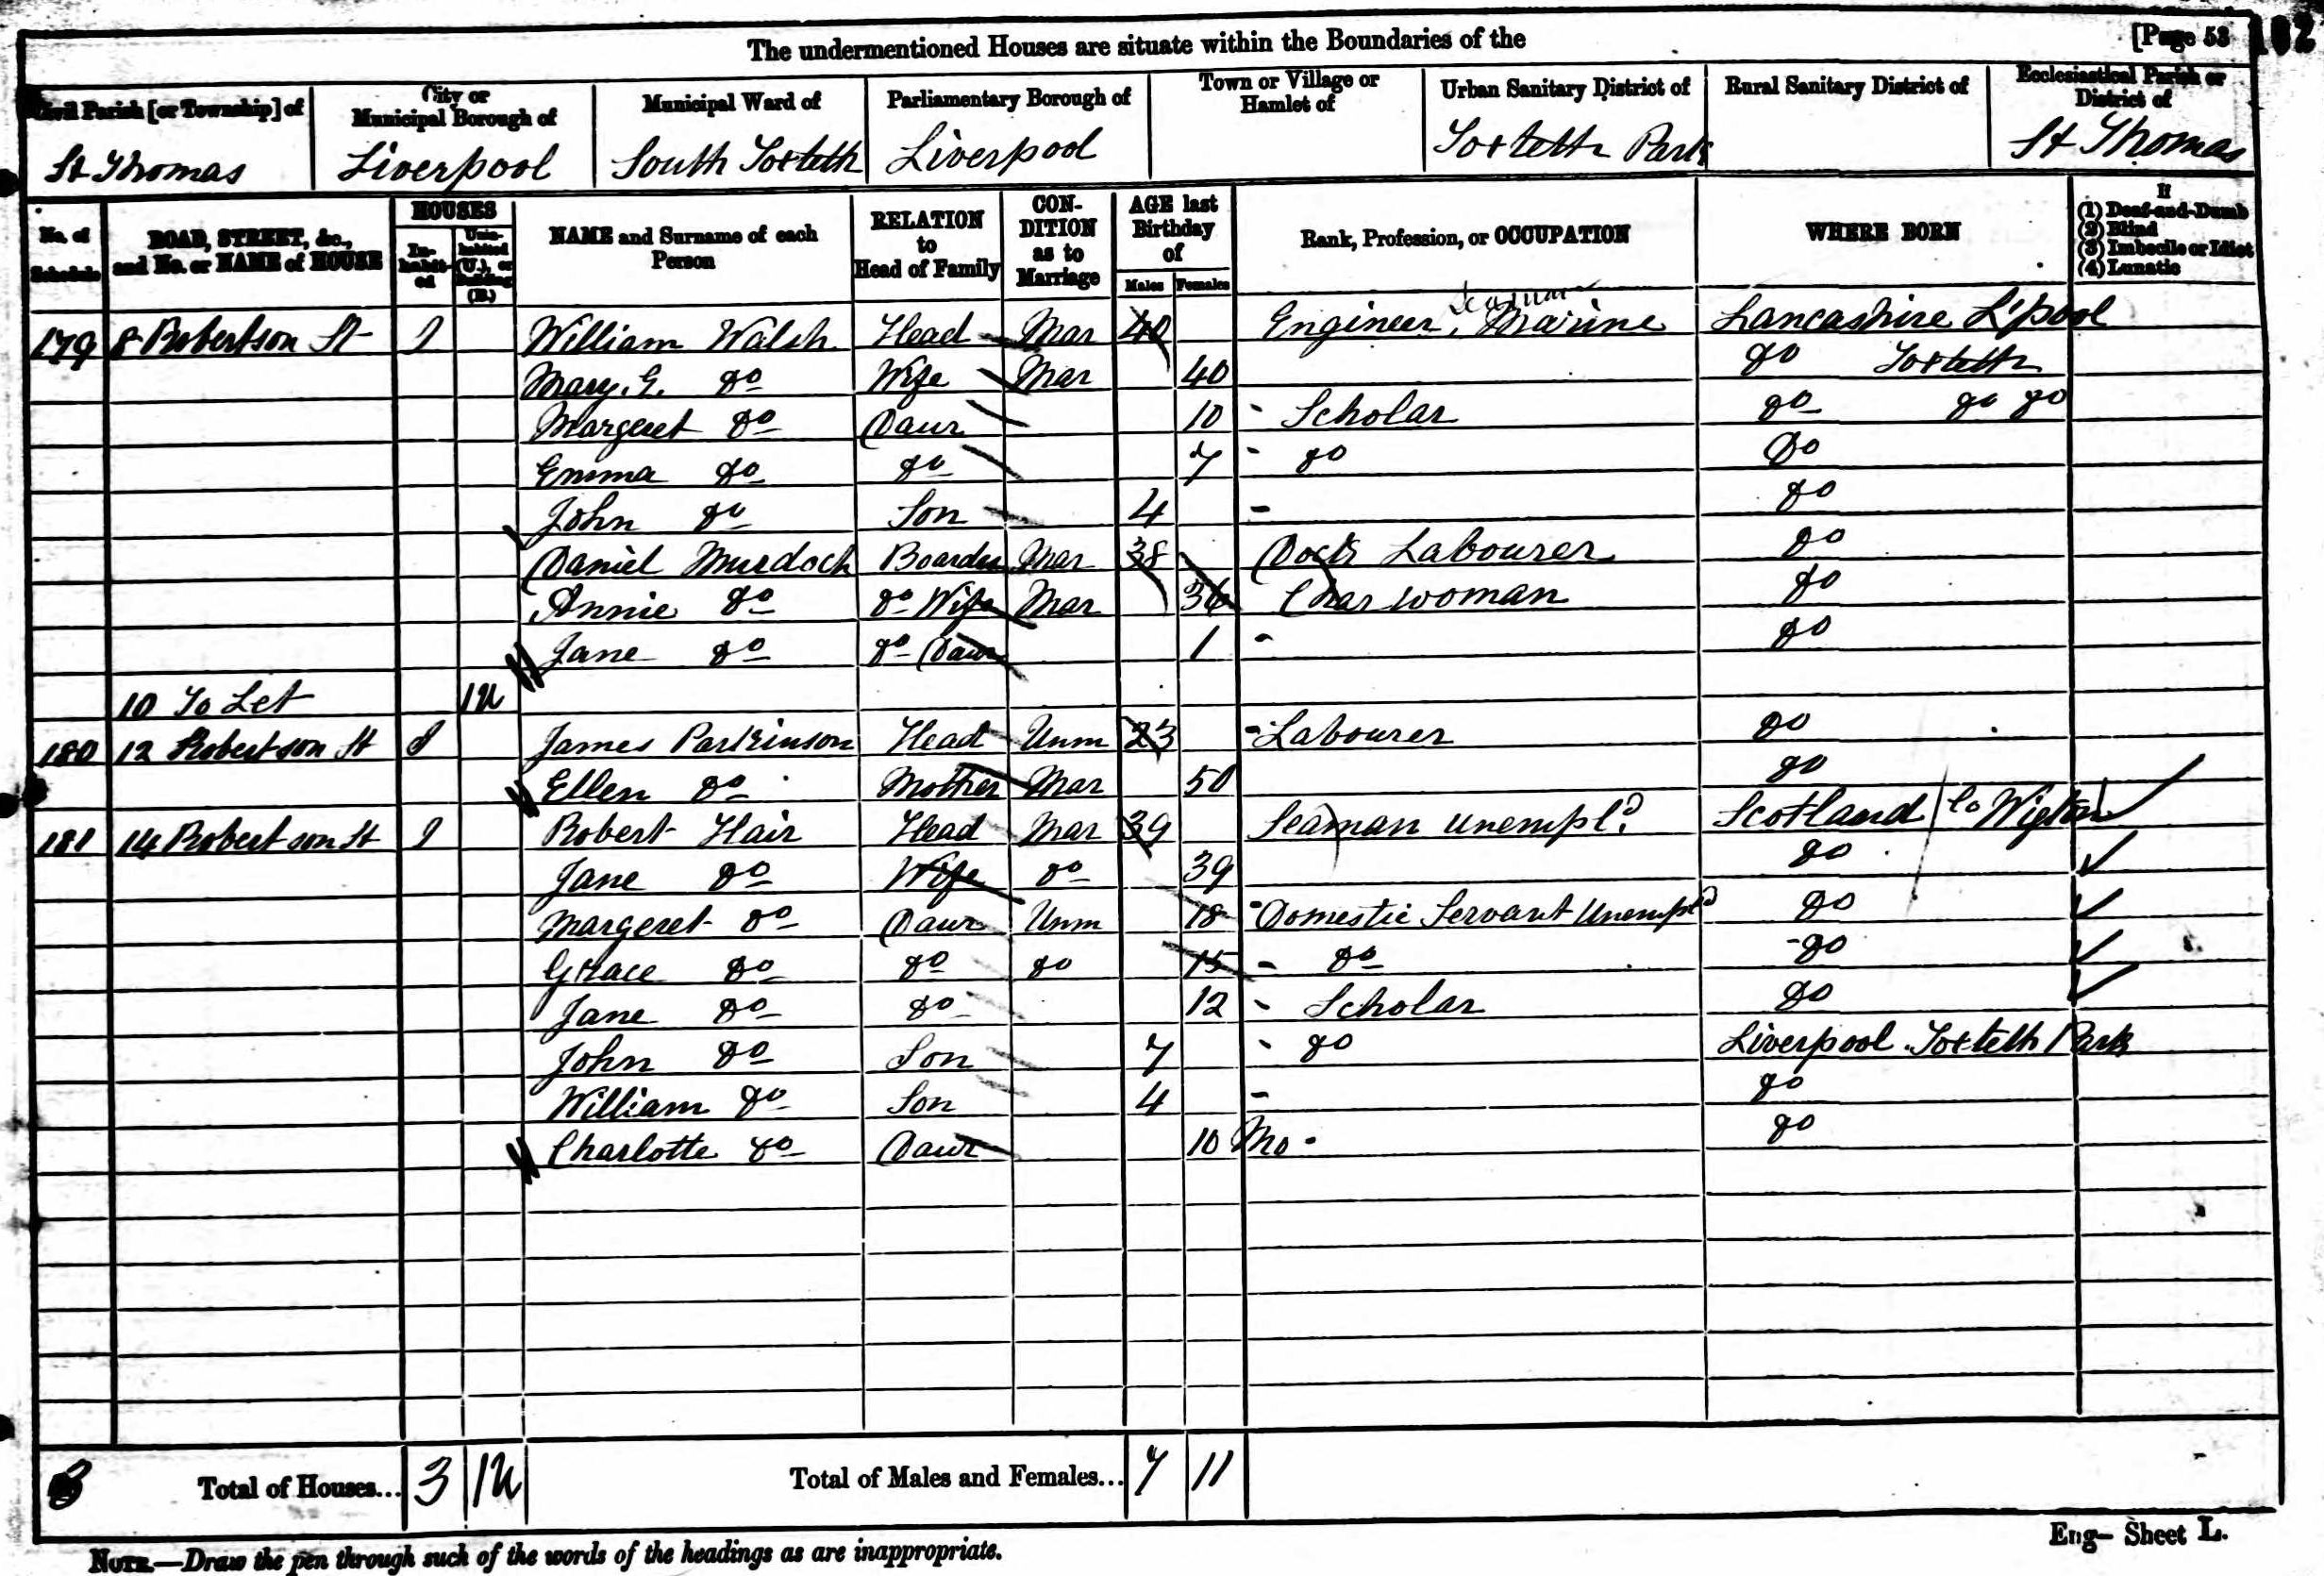 The undermentioned Houses are situate within the Boundaries of the [Page 53 102
Civil Parish [or Township] of City or Municipal Borough of Municipal Ward of Parliamentary Borough of Town or Village or Hamlet of Urban Sanitary District of Rural Sanitary District of Ecclesiastical Parish or District of
St Thomas Liverpool South Toxteth Liverpool Toxteth Park St Thomas
No. of Schedule ROAD, STREET, &c., and No. or NAME of HOUSE HOUSES Inhabited Uninhabited (U.), or Building (B.) NAME and Surname of each Person RELATION to Head of Family CONDITION as to Marriage AGE last Birthday of Males Females Rank, Profession, or OCCUPATION WHERE BORN If (1) Deaf-and-Dumb (2) Blind (3) Imbecile or Idiot (4) Lunatic
179 8 Robertson St 1 William Walsh Head Mar 40 Engineer, Marine Seaman Lancashire L'pool
Mary. E. do Wife Mar 40 do Toxteth
Margeret do Daur 10 Scholar do do do
Emma do do 7 do Do
John do Son 4 - do
Daniel Murdoch Boarder Mar 38 Dock Labourer do
Annie do do Wife Mar 36 Char woman do
Jane do do Daur 1 - do
10 To Let 1U
180 12 Robertson St 1 James Parkinson Head Unm 23 Labourer do
Ellen do Mother Mar 50 do
181 14 Robertson St 1 Robert Hair Head Mar 39 Seaman unempld. Scotland Co Wigton
Jane do Wife do 39 do
Margeret do Daur Unm 18 Domestic Servant Unempld do
Grace do do do 15 - do do
Jane do do 12 Scholar do
John do Son 7 do Liverpool. Toxteth Park
William do Son 4 - do
Charlotte do Daur 10 Mo - do
3 Total of Houses... 3 1U Total of Males and Females... 7 11
NOTE.—Draw the pen through such of the words of the headings as are inappropriate.
Eng— Sheet L.